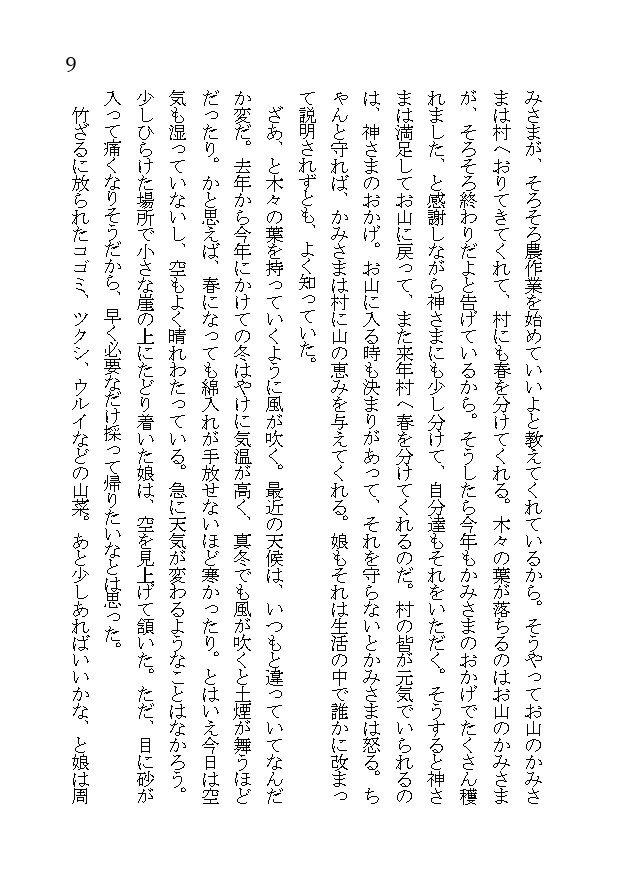 9
みさまが、そろそろ農作業を始めていいよと教えてくれているから。そうやってお山のかみさ
まは村へおりてきてくれて、村にも春を分けてくれる。木々の葉が落ちるのはお山のかみさま
が、そろそろ終わりだよと告げているから。そうしたら今年もかみさまのおかげでたくさん穫
れました、と感謝しながら神さまにも少し分けて、自分達もそれをいただく。そうすると神さ
まは満足してお山に戻って、また来年村へ春を分けてくれるのだ。村の皆が元気でいられるの
は、神さまのおかげ。お山に入る時も決まりがあって、それを守らないとかみさまは怒る。ち
ゃんと守れば、かみさまは村に山の恵みを与えてくれる。娘もそれは生活の中で誰かに改まっ
て説明されずとも、よく知っていた。
ざあ、と木々の葉を持っていくように風が吹く。最近の天候は、いつもと違っていてなんだ
か変だ。去年から今年にかけての冬はやけに気温が高く、真冬でも風が吹くと土煙が舞うほど
だったり。かと思えば、春になっても綿入れが手放せないほど寒かったり。とはいえ今日は空
気も湿っていないし、空もよく晴れわたっている。急に天気が変わるようなことはなかろう。
少しひらけた場所で小さな崖の上にたどり着いた娘は、空を見上げて頷いた。ただ、目に砂が
入って痛くなりそうだから、早く必要なだけ採って帰りたいなとは思った。
竹ざるに放られたコゴミ、ツクシ、ウルイなどの山菜。あと少しあればいいかな、と娘は周